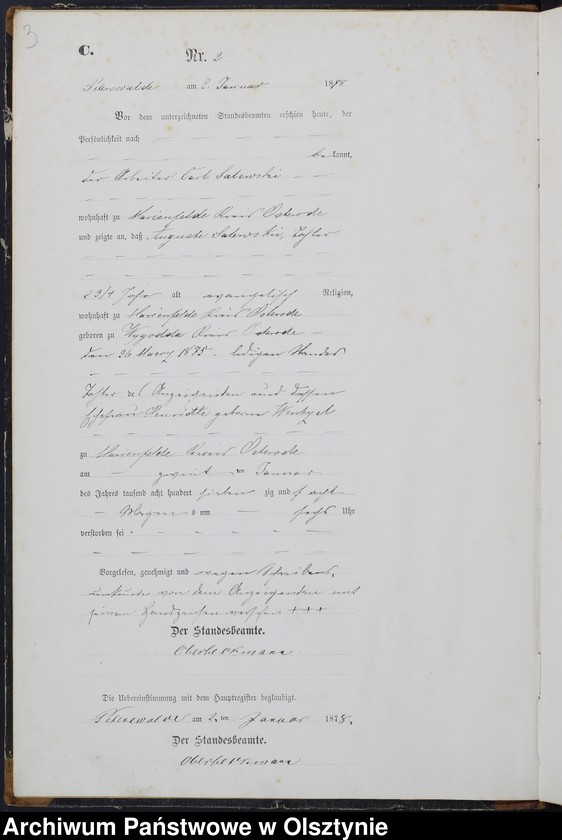 3
C.
Nr. 2
Peterswalde am 2. Januar 1878
Vor dem unterzeichneten Standesbeamten erschien heute, der
Persönlichkeit nach
bekannt,
der Arbeiter Carl Salewski
wohnhaft zu Marienfelde Kreis Osterode
und zeigte an, daß Auguste Salewski, Tochter
2 3/4 Jahr alt evangelisch Religion,
wohnhaft zu Marienfelde Kreis Osterode
geboren zu Wygodda Kreis Osterode
den 26 1875. ledigen Standes
Tochter des Anzeigenden und dessen
Ehefrau Henriette geborne
zu Marienfelde Kreis Osterode
am zweiten Januar
des Jahres tausend acht hundert sieben zig und acht
Morgens um sechs Uhr
verstorben sei
Vorgelesen, genehmigt und wegen Schreibens-
unkunde von dem Anzeigenden mit
seinem Handzeichen versehen +++
Der Standesbeamte.
Oberbeckmann
Die Uebereinstimmung mit dem Hauptregister beglaubigt.
Peterswalde am 2. ten Januar 1878.
Der Standesbeamte.
Oberbeckmann
Archiwum Państwowe w Olsztynie